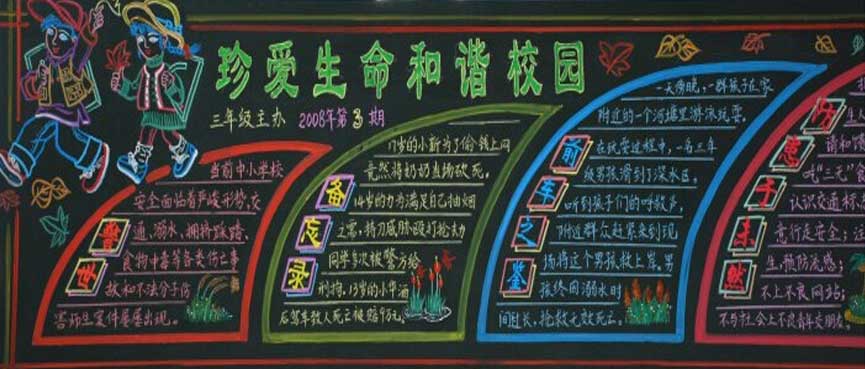 珍爱生命和谐校园
三年级主办 2008年第3期
警世
当前中小学校
安全面临着严峻形势,交
通、溺水、拥挤踩踏、
食物中毒等各类伤亡事
故和不法分子伤
害师生案件屡屡出现。
备忘录
17岁的小新为了偷钱上网
竟然将奶奶当场砍死。
14岁的力为满足自己抽烟
之需,持刀威胁殴打抢劫
同学多次被警方给
刑拘。13岁的小华酒
后驾车致人死亡被赔9万元。
前车之鉴
一天傍晚,一群孩子在家
附近的一个河塘里游泳玩耍。
在玩耍过程中,一名三年
级男孩滑到了深水区,
听到孩子们的呼救声,
附近群众赶紧来到现
场将这个男孩救上岸。男
孩终因溺水时
间过长,抢救无效死亡。
防患于未然
生
请和
吃“三无”食
认识交通标
意行走安全;注
生,预防流感;
不上不良网站;
不与社会上不良青年交朋友。